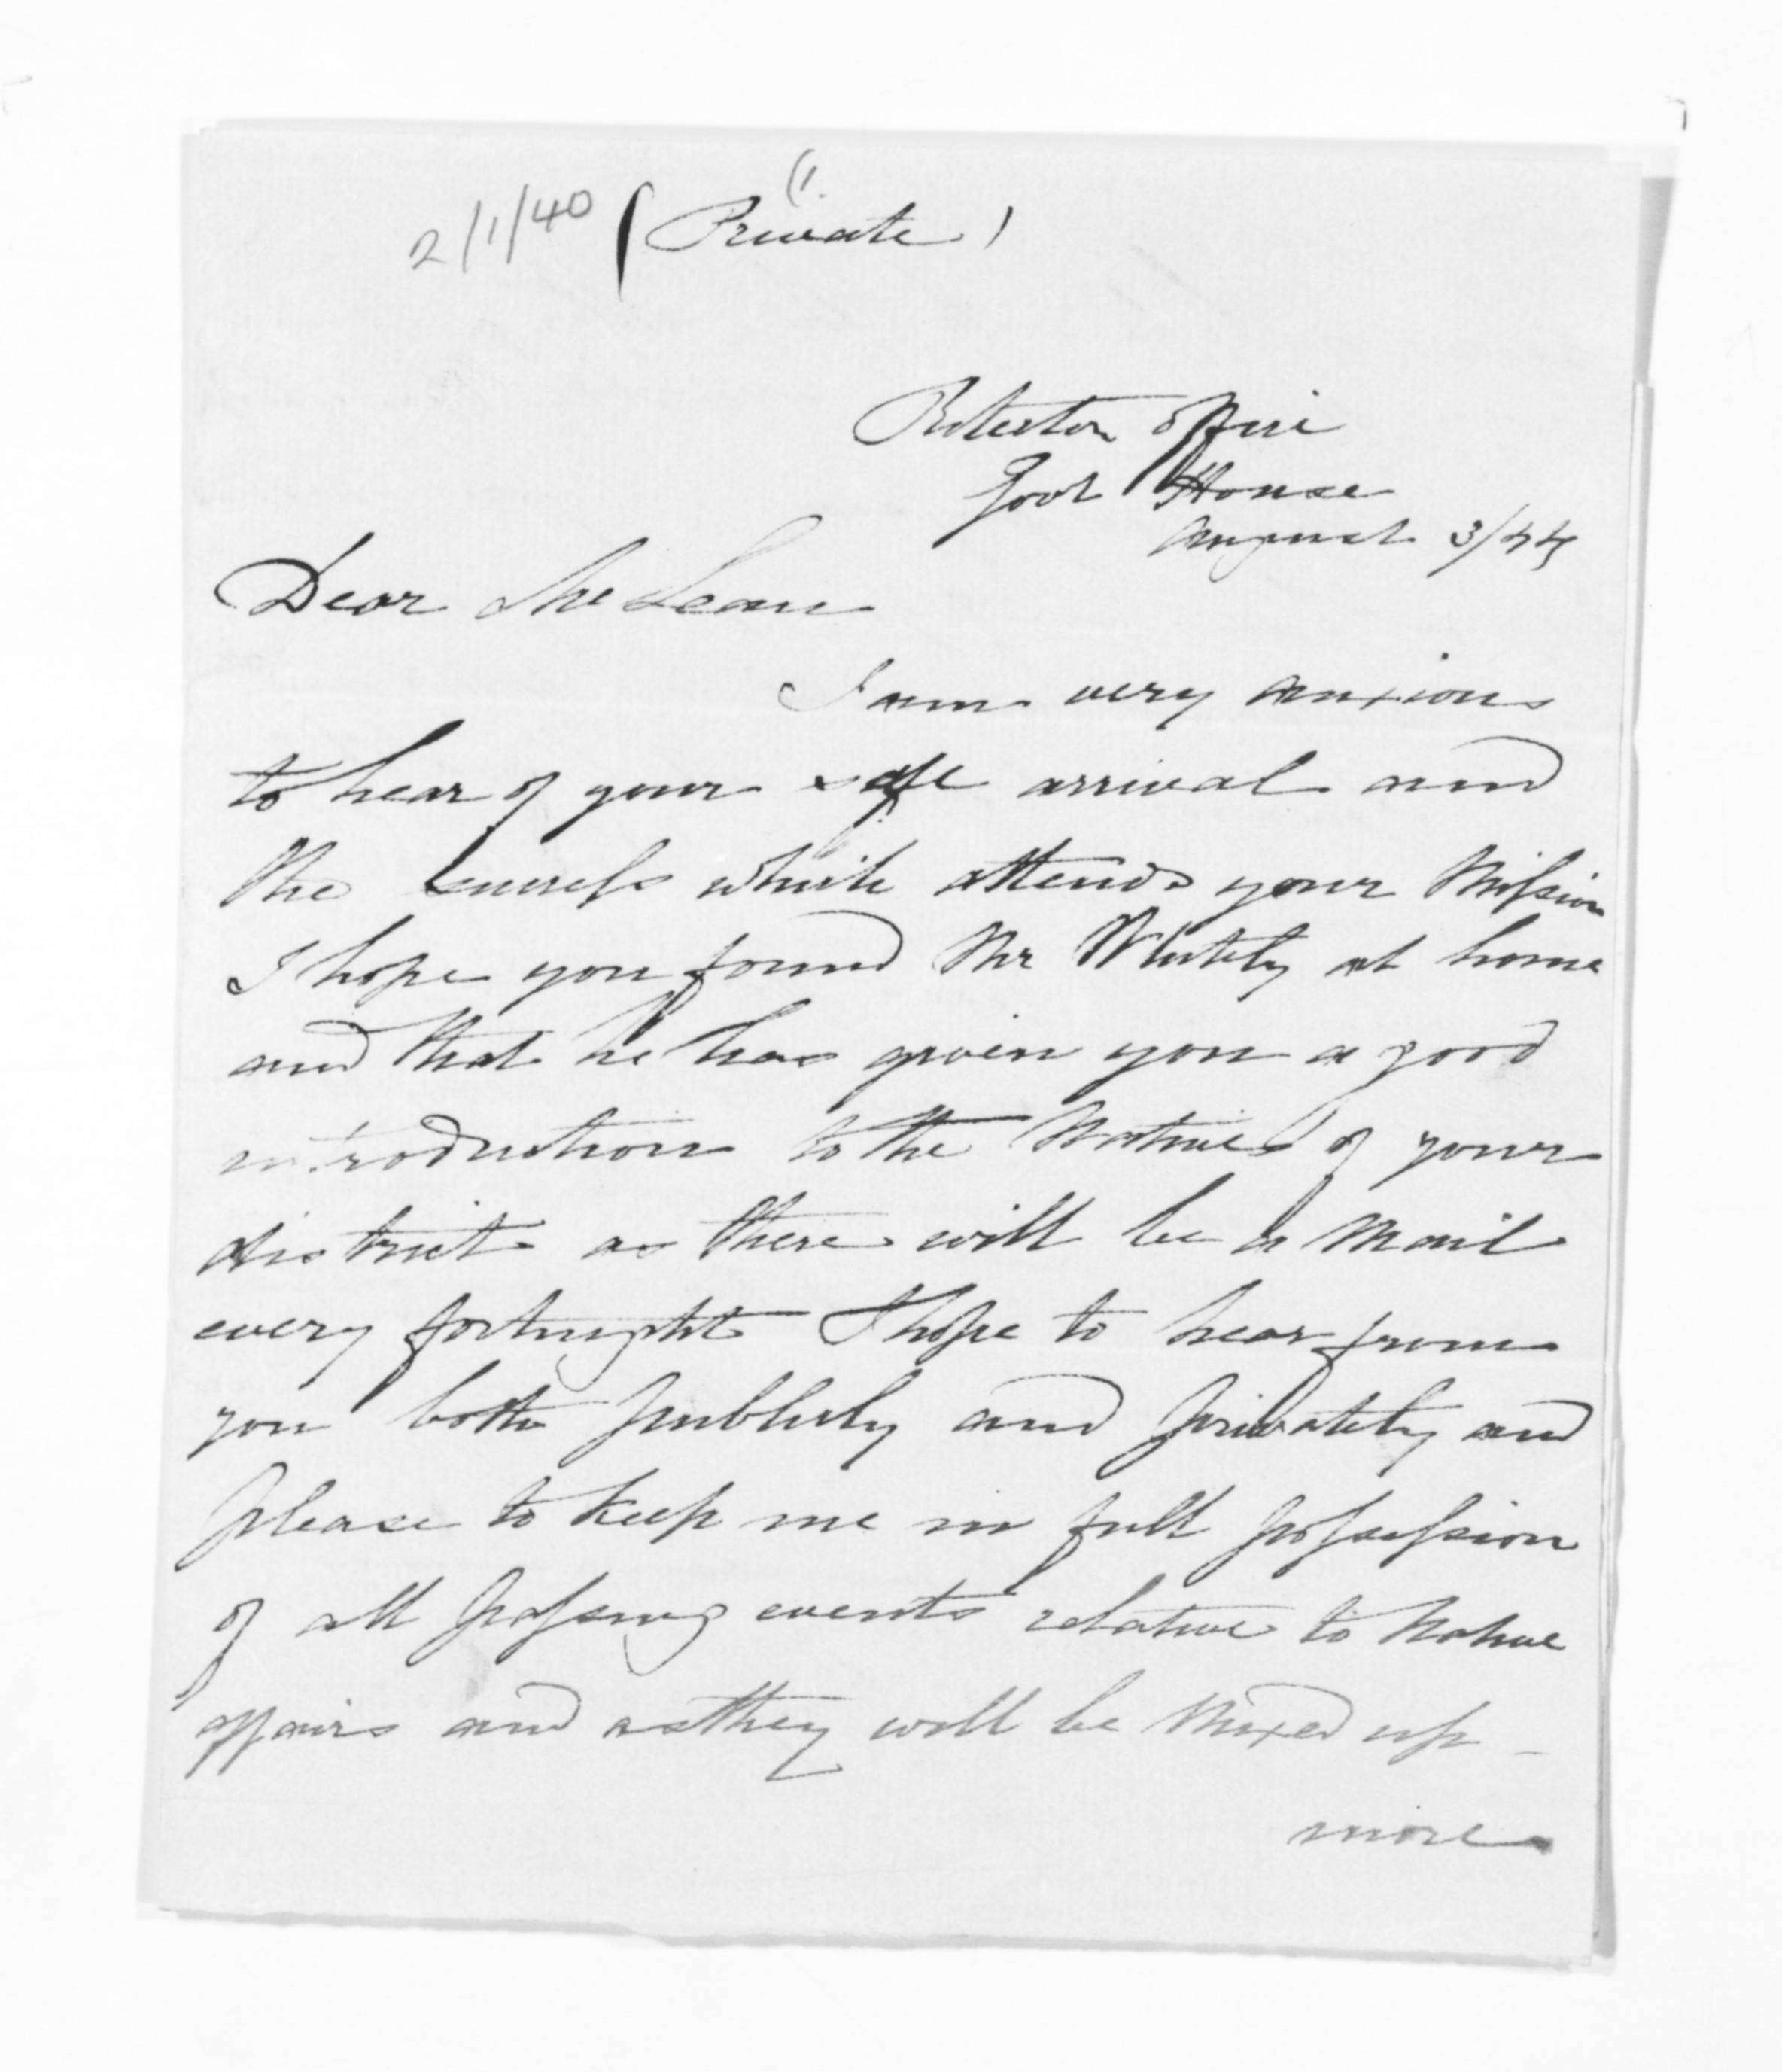 2/1/40 (Private)
(1.
Protector Office
Govt House
August 3/44
Dear McLean
I am very anxious
to hear of your safe arrival and
the success which attends your Mission
I hope you found Mr Whitely at home
and that he has given you a good
introduction to the Natives of your
district as there will be a Mail
every fortnight I hope to hear from
you both publicly and privately and
please to keep me in full possession
of all passing events relative to Native
affairs and as they will be mixed up
more